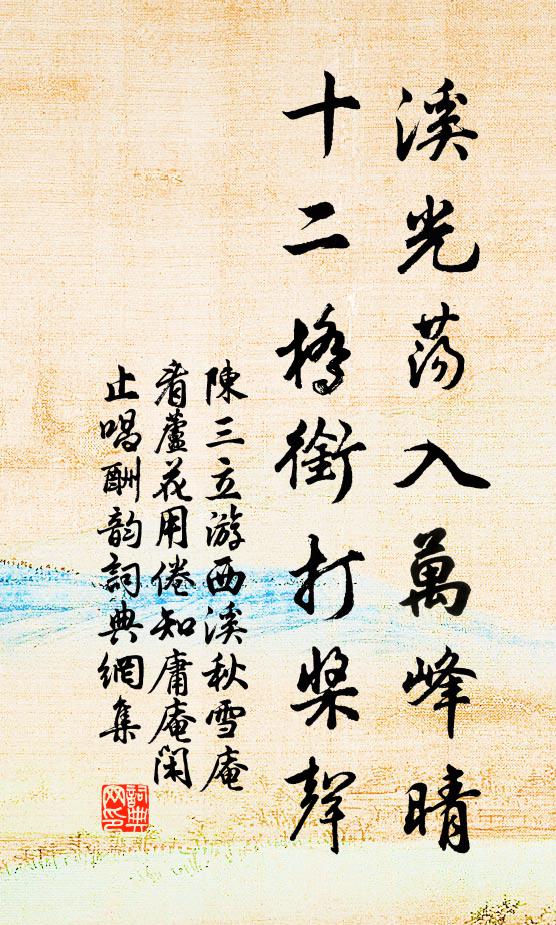 溪光蕩入萬峰晴
十二橋銜打槳聲
陳三立游西溪秋雪庵
看蘆花用倦知庸庵閑
止唱酬韵詞典網集
詞典
网印